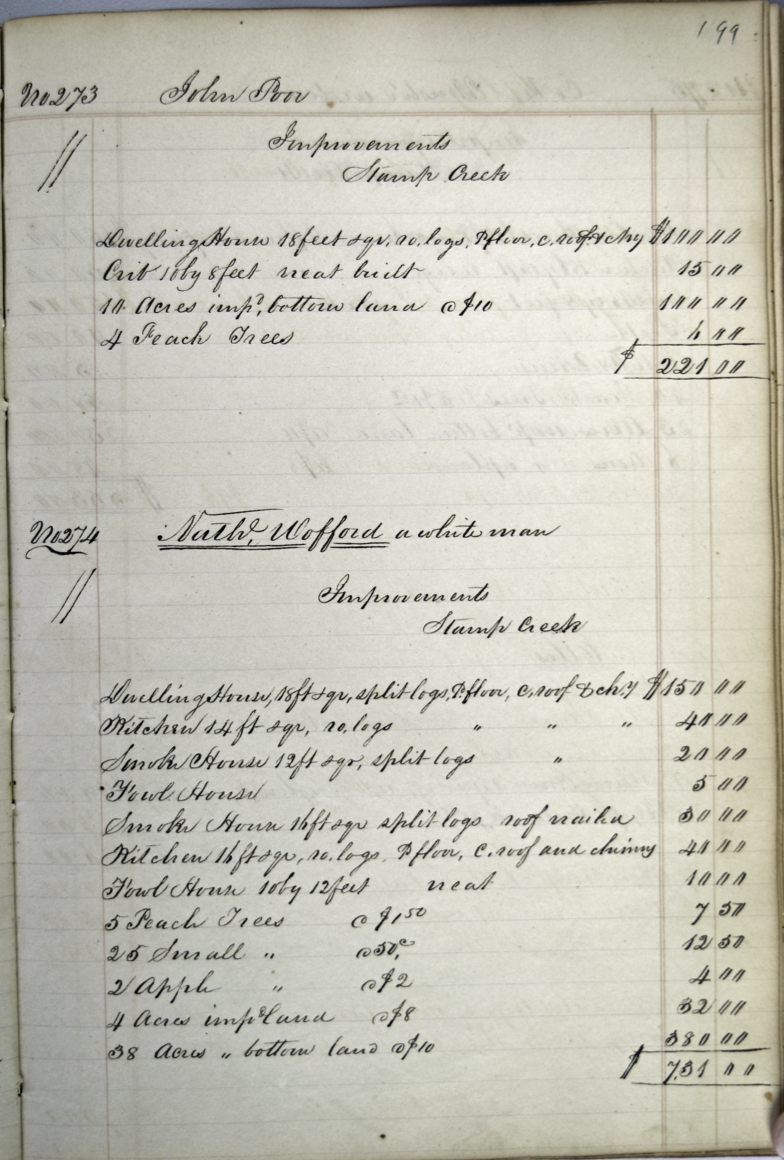 199
No 273 John Poor
Improvements
Stamp Creek
Dwelling House 18 feet sqr, ro, logs, P. floor, c. roof & chy $100 00
Crib 10 by 8 feet neat built 15 00
10 Acres impd, bottom land @ $10 100 00
4 Peach Trees 6 00
$ 221 00
No 274 Nathl. Wofford a white man
Improvements
Stamp Creek
Dwelling House, 18 ft sqr, split logs, P. floor, c, roof & chy $150 00
Kitchen 14 ft sqr, ro, logs " " " 40 00
Smoke House 12 ft sqr, split logs " 20 00
Fowl House 5 00
Smoke House 16 ft sqr split logs roof nailed 30 00
Kitchen 16 ft sqr, ro, logs, P. floor, C. roof and chimny 40 00
Fowl House 10 by 12 feet neat 10 00
5 Peach Trees @ $1.50 7 50
25 Small " @ 50c 12 50
2 Apple " @ $2 4 00
4 Acres impd land @ $8 32 00
38 Acres " bottom land @ $10 380 00
$ 731 00